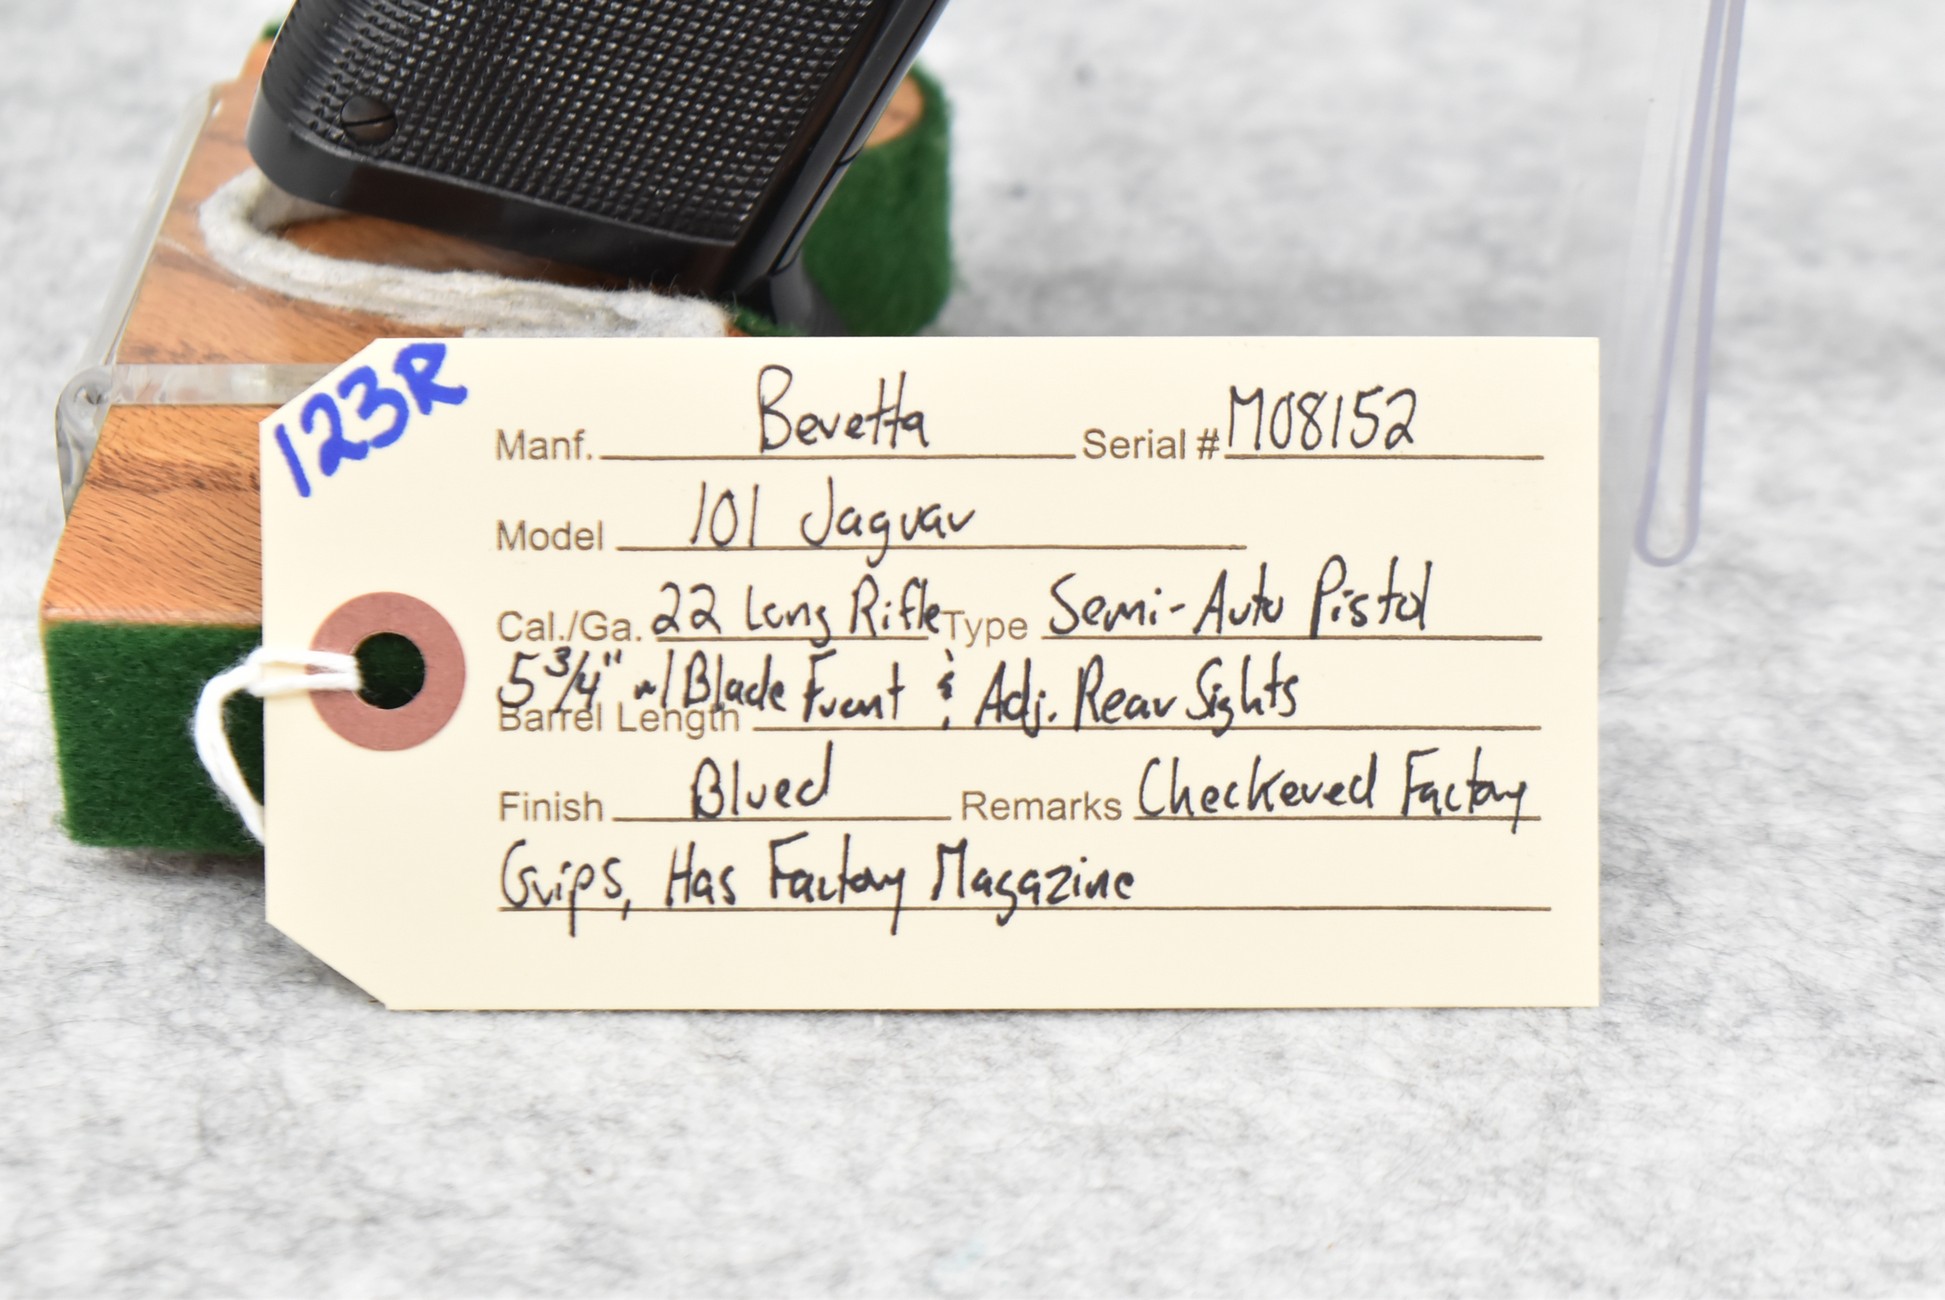 123R
Manf. Beretta Serial # M08152
Model 101 Jaguar
Cal./Ga. 22 Long Rifle Type Semi-Auto Pistol
Barrel Length 5 3/4" w/ Blade Front & Adj. Rear Sights
Finish Blued Remarks Checkered Factory
Grips, Has Factory Magazine